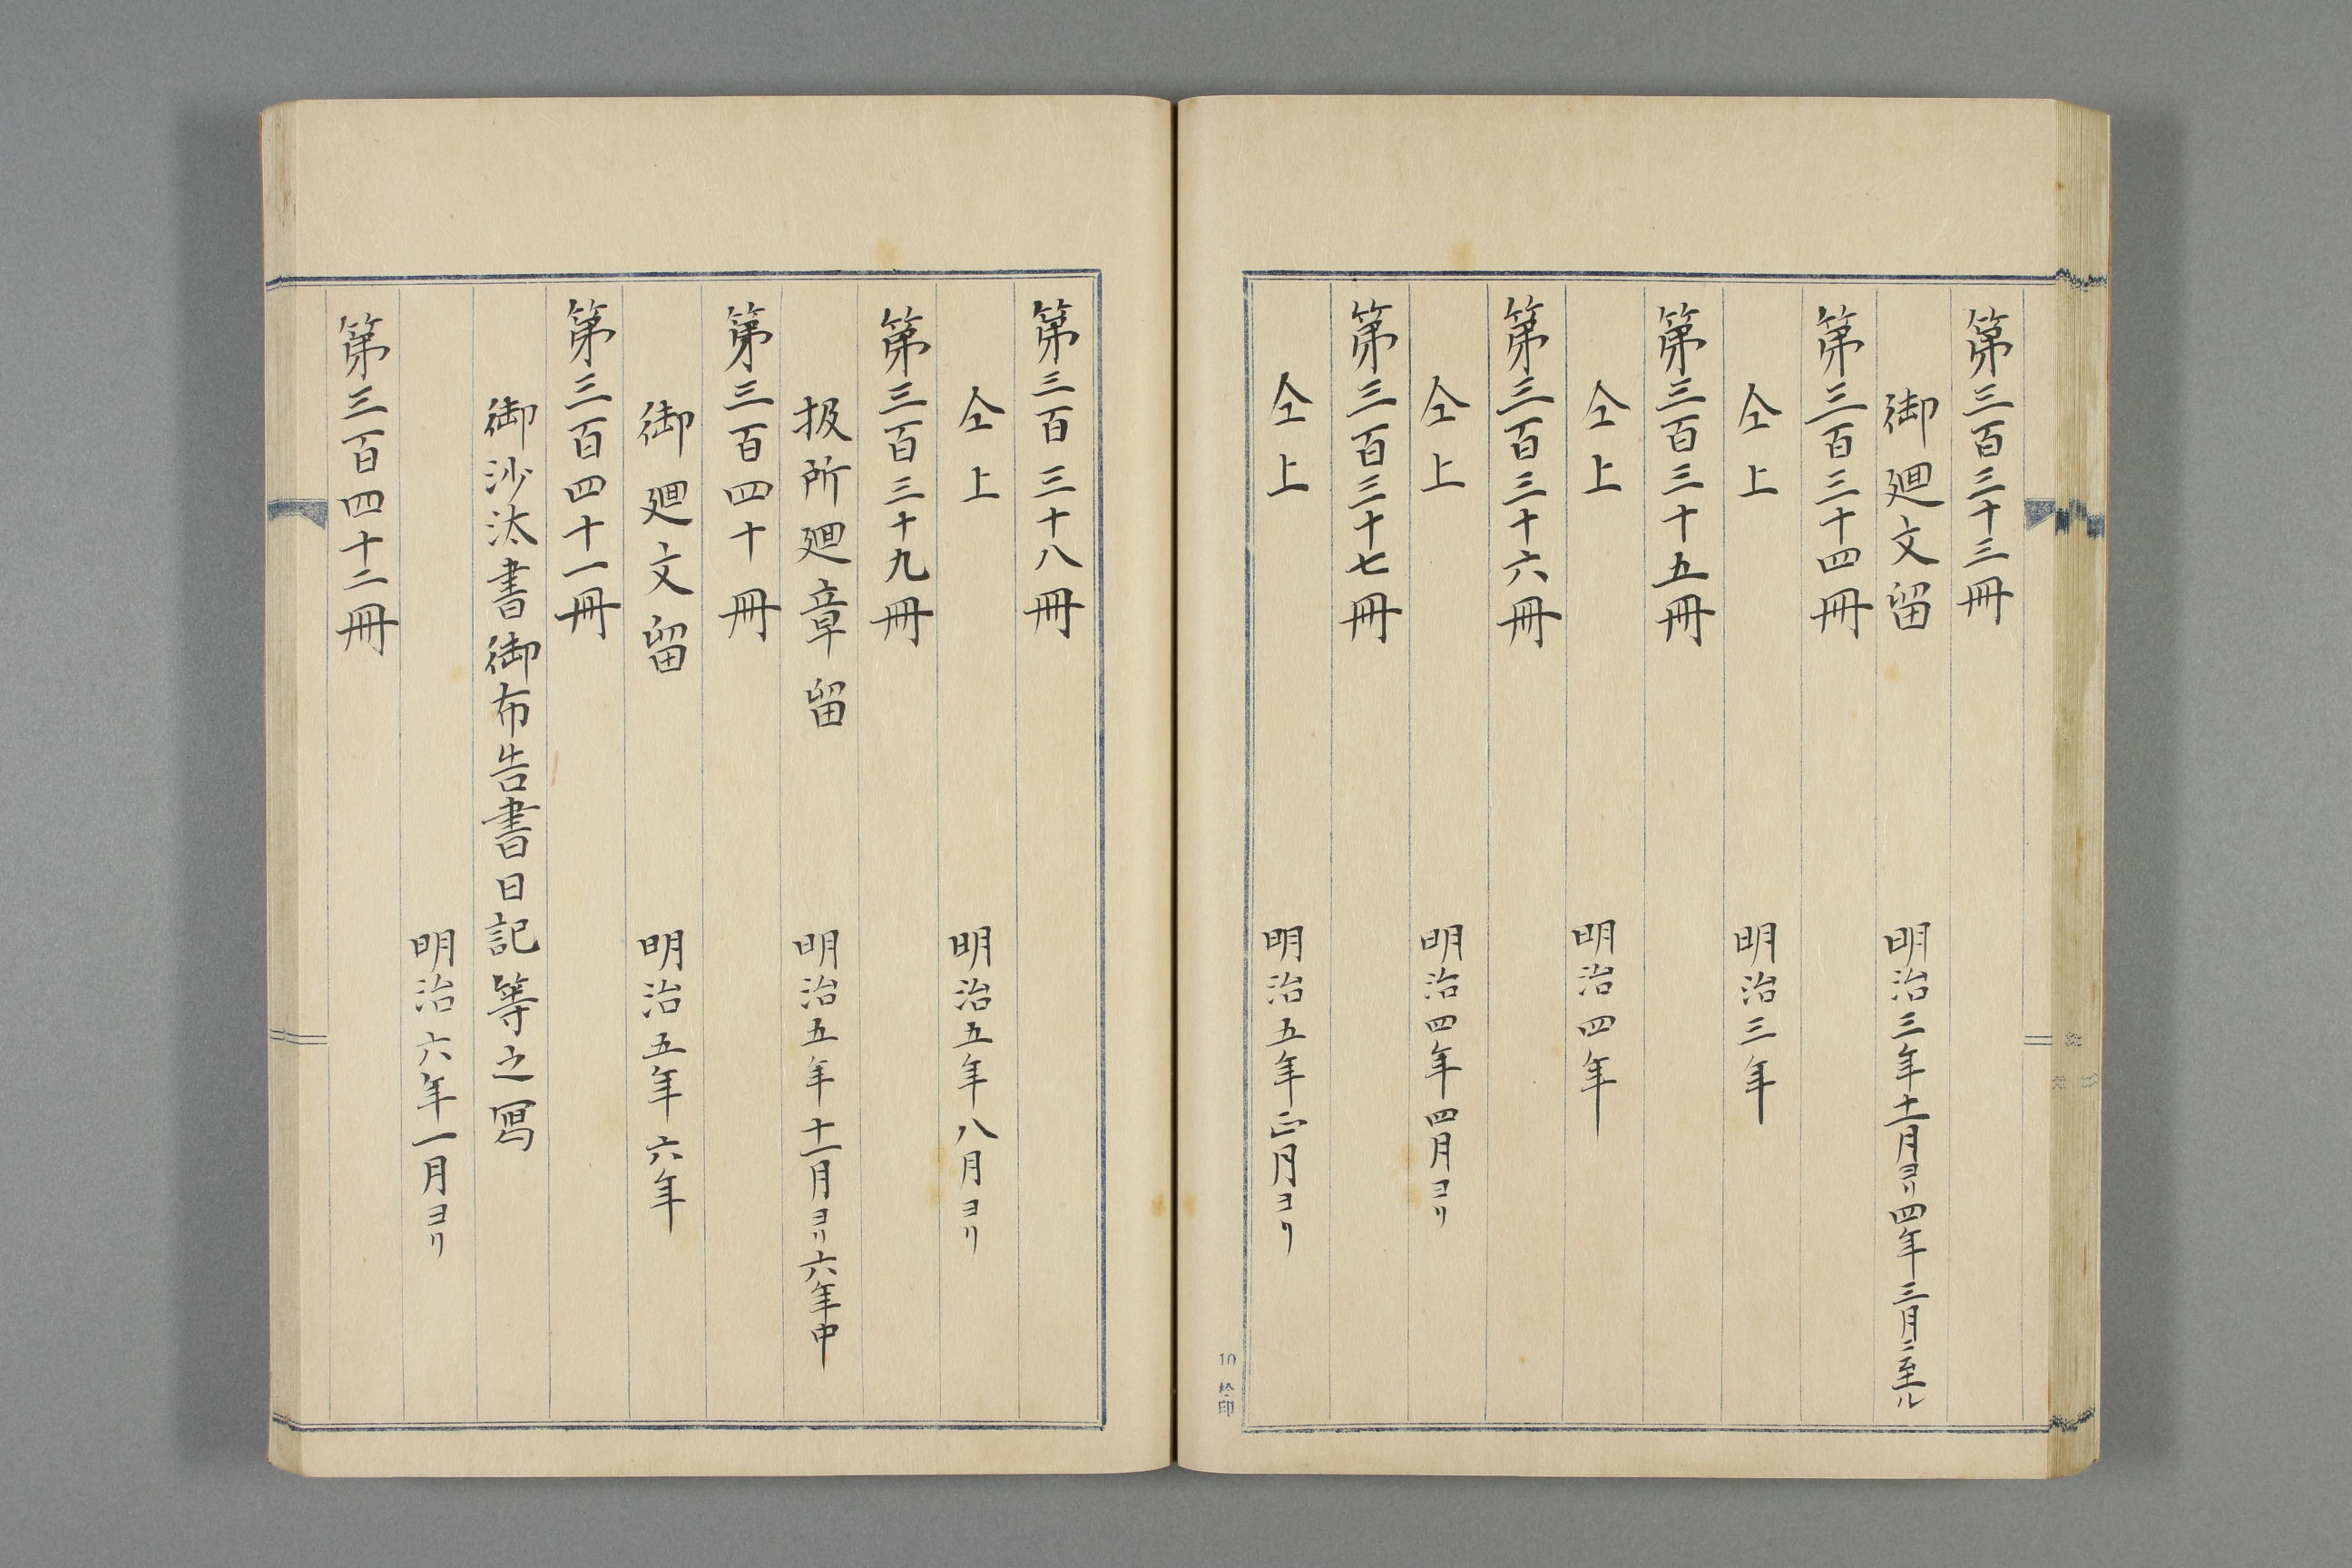 第三百三十三冊
御廻文留 明治三年十一月ヨリ四年三月ニ至ル
第三百三十四冊
仝上 明治三年
第三百三十五冊
仝上 明治四年
第三百三十六冊
仝上 明治四年四月ヨリ
第三百三十七冊
仝上 明治五年正月ヨリ
第三百三十八冊
仝上 明治五年八月ヨリ
第三百三十九冊
扱所廻章留 明治五年十一月ヨリ六年中
第三百四十冊
御廻文留 明治五年六年
第三百四十一冊
御沙汰書御布告書日記等之寫
明治六年一月ヨリ
第三百四十二冊